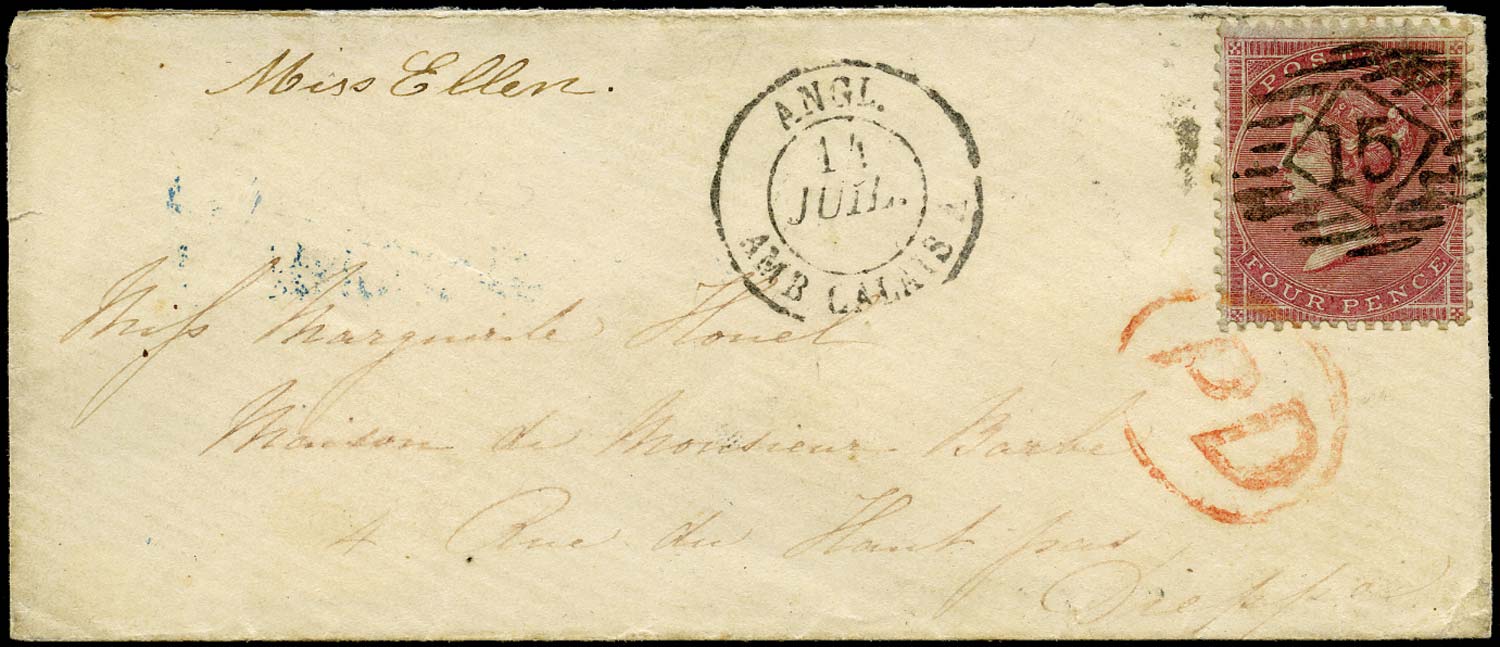 Miss Ellen.
ANGL.
14
JUIL.
AMB CALAIS
POSTAGE
75
FOUR PENCE
PD
Miss Marguerite Houel
Maison de Monsieur Barbe
4 Rue du Haut pas